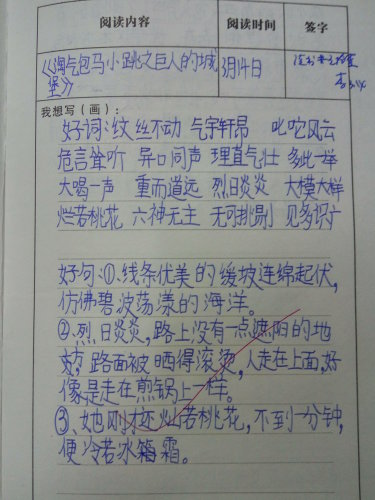 阅读内容 阅读时间 签字
《淘气包马小跳之巨人的城
堡》 3月14日
我想写（画）：
好词：纹丝不动 气宇轩昂 叱咤风云
危言耸听 异口同声 理直气壮 多此一举
大喝一声 重而道远 烈日炎炎 大模大样
烂若桃花 六神无主 无可挑剔 见多识广
好句：①、线条优美的缓坡连绵起伏，
仿佛碧波荡漾的海洋。
②、烈日炎炎，路上没有一点遮阳的地
方，路面被晒得滚烫，人走在上面，好
像是走在煎锅上一样。
③、她刚才还灿若桃花，不到一分钟，
便冷若冰箱霜。